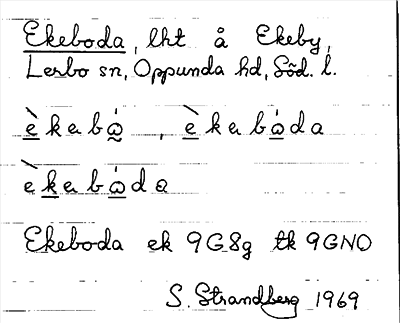 Ekeboda, lht å Ekeby,
Lerbo sn, Oppunda hd, Söd. l.
èkebώ̣, èkebώda
èkebώda
Ekeboda ek 9G8g tk 9GNO
S. Strandberg 1969